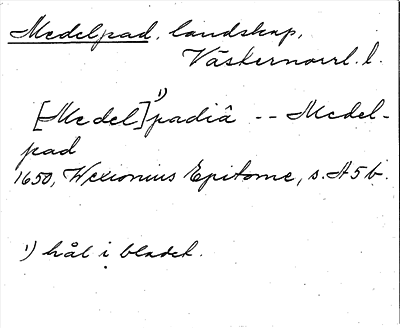 Medelpad, landskap,
Västernorrl. l.
[Medel]¹⁾padiâ -- Medel-
pad
1650, Wexionius Epitome, s. A 5 b.
¹⁾ hål i bladet.